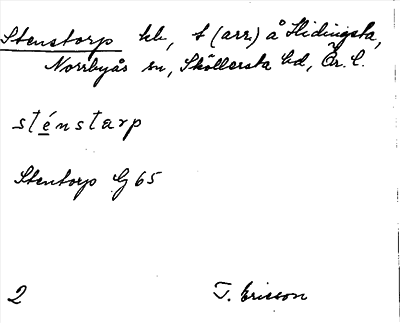 Stenstorp hl, t (arr.) å Hidingsta,
Norrbyås sn, Sköllersta hd, Ör. l.
sténstarp
Stentorp G 65
2 T. Ericson